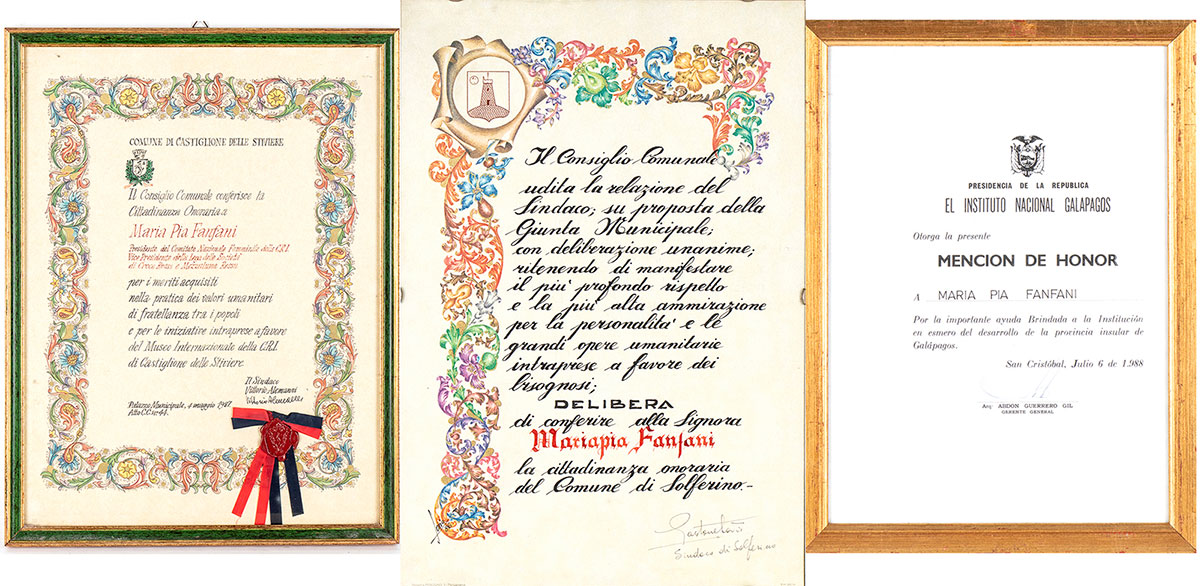 COMUNE DI CASTIGLIONE DELLE STIVIERE
Il Consiglio Comunale conferisce la
Cittadinanza Onoraria a
Maria Pia Fanfani
Presidente del Comitato Nazionale Femminile della C.R.I.
Vice Presidente della Lega delle Società
di Croce Rossa e Mezzaluna Rossa
per i meriti acquisiti
nella pratica dei valori umanitari
di fratellanza tra i popoli
e per le iniziative intraprese a favore
del Museo Internazionale della C.R.I.
di Castiglione delle Stiviere
Il Sindaco
Vittorio Alemanni
Palazzo Municipale, 4 maggio 1987
Atto CC nr. 64.
Il Consiglio Comunale
udita la relazione del
Sindaco; su proposta della
Giunta Municipale;
con deliberazione unanime;
ritenendo di manifestare
il piu' profondo rispetto
e la piu' alta ammirazione
per la personalita' e le
grandi opere umanitarie
intraprese a favore dei
bisognosi;
DELIBERA
di conferire alla Signora
Mariapia Fanfani
la cittadinanza onoraria
del Comune di Solferino.-
Sindaco di Solferino
PRESIDENCIA DE LA REPUBLICA
EL INSTITUTO NACIONAL GALAPAGOS
Otorga la presente
MENCION DE HONOR
A MARIA PIA FANFANI
Por la importante ayuda Brindada a la Institución
en esmero del desarrollo de la provincia insular de
Galápagos.
San Cristóbal, Julio 6 de 1.988
Arq. ABDON GUERRERO GIL
GERENTE GENERAL